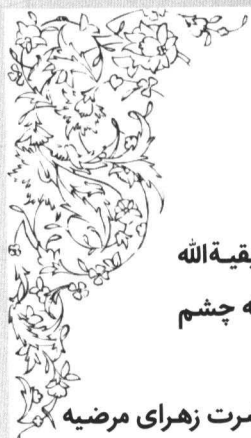 بقیةالله
ه چشم
رت زهرای مرضیه